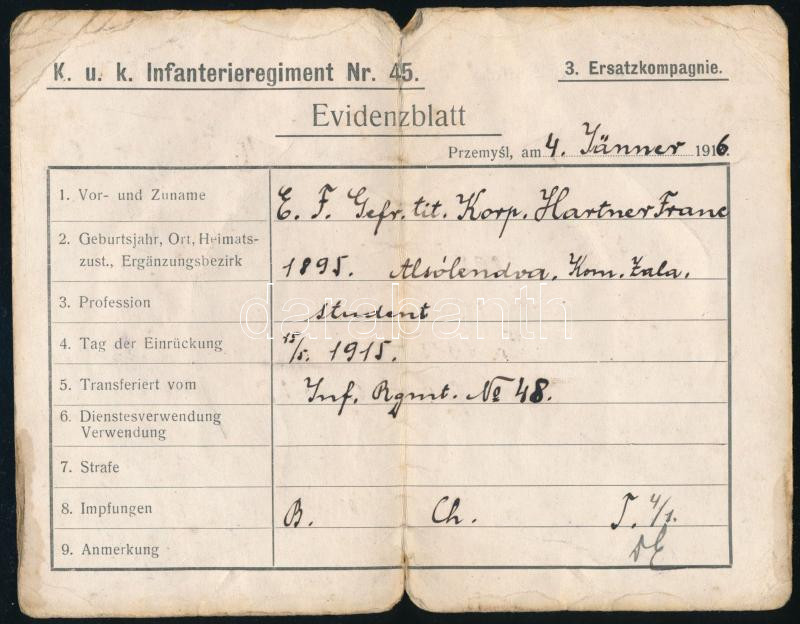 K. u. k. Infanterieregiment Nr. 45.
3. Ersatzkompagnie.
Evidenzblatt
Przemyśl, am 4. Jänner 1916.
1. Vor- und Zuname
E. F. Gefr. tit. Korp. Hartner Franc
2. Geburtsjahr, Ort, Heimats-
zust., Ergänzungsbezirk
1895. Alsólendva, Kom. Zala.
3. Profession
student
4. Tag der Einrückung
15/5. 1915.
5. Transferiert vom
Inf. Rgmt. № 48.
6. Dienstesverwendung
Verwendung
7. Strafe
8. Impfungen
B. Ch. T. 4/1.
9. Anmerkung
darabanth